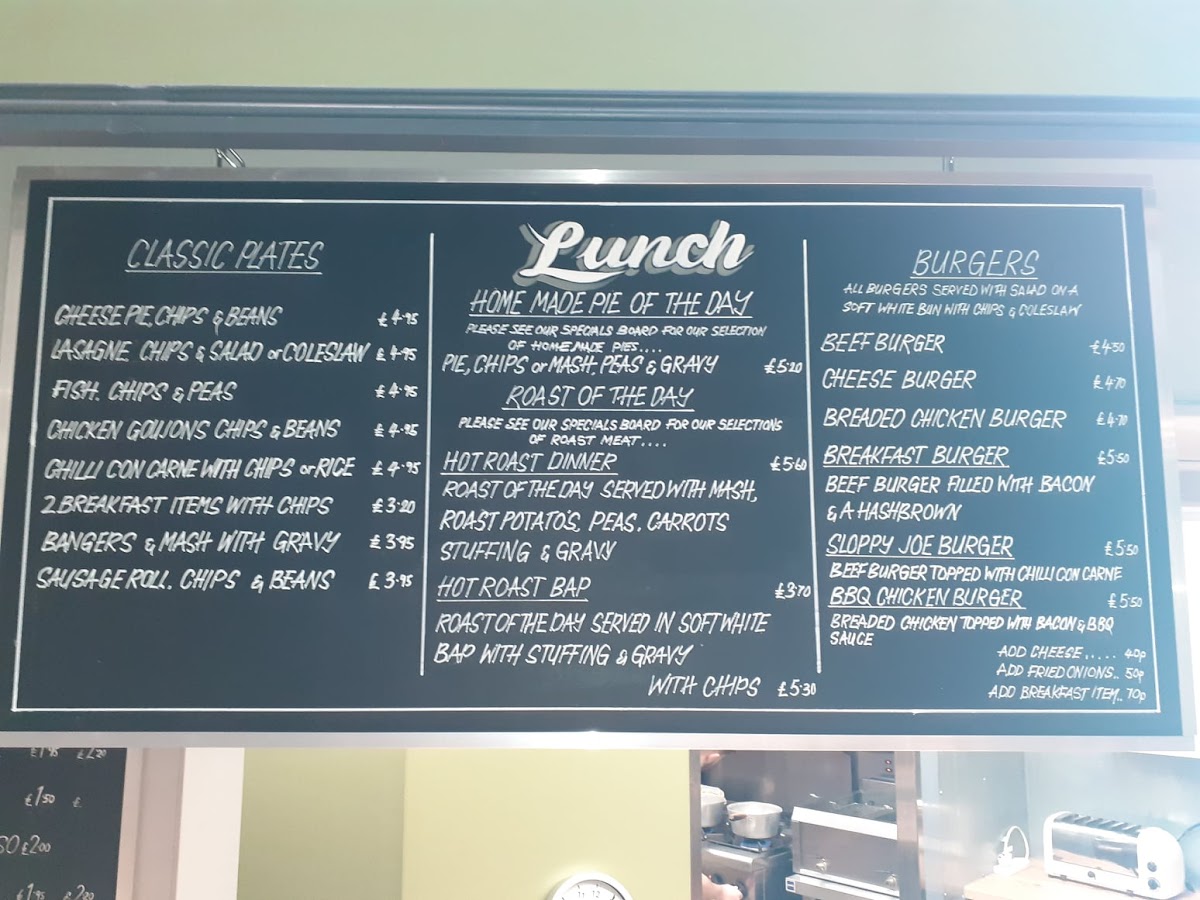 CLASSIC PLATES
CHEESE PIE, CHIPS & BEANS £4.95
LASAGNE CHIPS & SALAD or COLESLAW £4.95
FISH. CHIPS & PEAS £4.95
CHICKEN GOUJONS CHIPS & BEANS £4.95
CHILLI CON CARNE WITH CHIPS or RICE £4.95
2 BREAKFAST ITEMS WITH CHIPS £3.20
BANGERS & MASH WITH GRAVY £3.95
SAUSAGE ROLL. CHIPS & BEANS £3.95
Lunch
HOME MADE PIE OF THE DAY
PLEASE SEE OUR SPECIALS BOARD FOR OUR SELECTION
OF HOMEMADE PIES....
PIE, CHIPS or MASH, PEAS & GRAVY £5.20
ROAST OF THE DAY
PLEASE SEE OUR SPECIALS BOARD FOR OUR SELECTIONS
OF ROAST MEAT....
HOT ROAST DINNER £5.60
ROAST OF THE DAY SERVED WITH MASH,
ROAST POTATO'S, PEAS. CARROTS
STUFFING & GRAVY
HOT ROAST BAP £3.70
ROAST OF THE DAY SERVED IN SOFT WHITE
BAP WITH STUFFING & GRAVY
WITH CHIPS £5.30
BURGERS
ALL BURGERS SERVED WITH SALAD ON A
SOFT WHITE BUN WITH CHIPS & COLESLAW
BEEF BURGER £4.50
CHEESE BURGER £4.70
BREADED CHICKEN BURGER £4.70
BREAKFAST BURGER £5.50
BEEF BURGER FILLED WITH BACON
& A HASHBROWN
SLOPPY JOE BURGER £5.50
BEEF BURGER TOPPED WITH CHILLI CON CARNE
BBQ CHICKEN BURGER £5.50
BREADED CHICKEN TOPPED WITH BACON & BBQ
SAUCE
ADD CHEESE..... 40p
ADD FRIED ONIONS.. 50p
ADD BREAKFAST ITEM.. 70p
£1.95 £2.20
£1.50 £
SO £2.00
£1.95 £2.20